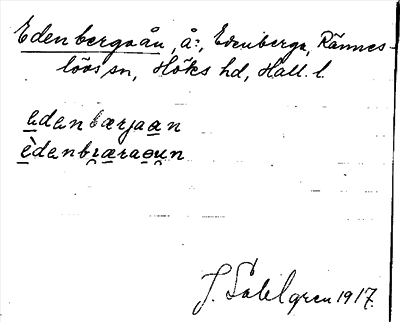 Edenbergaån, å:, Edenberga, Rännes-
lövs sn, Höks hd, Hall. l.
edenbærjaan
èdenbɪæraoun
J. Sahlgren 1917.